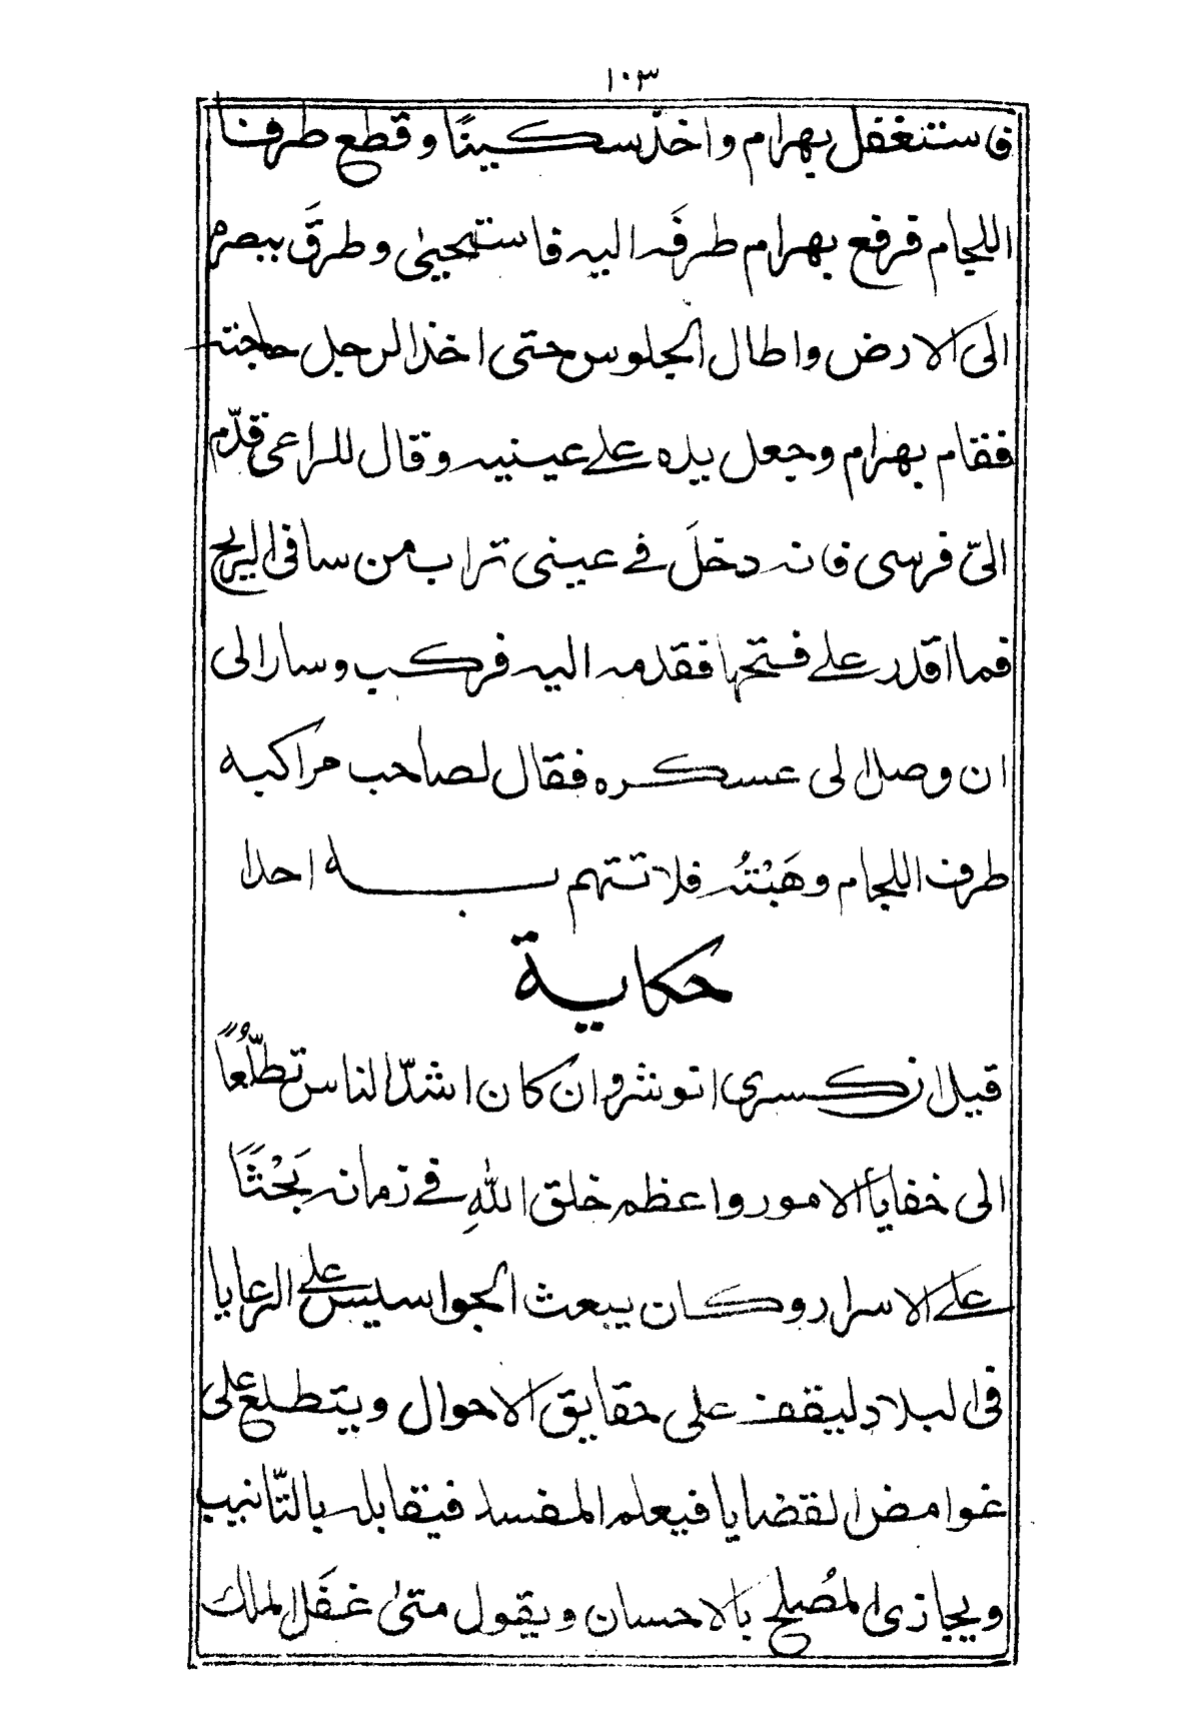 ١٠٣
فاستغفل بهرام واخذ سكينًا وقطع طرفا
اللجام فرفع بهرام طرفَه اليه فاستحيىٰ وطرقَ ببصره
الى الارض واطال الجلوس حتى اخذ الرجل حاجته
فقام بهرام وجعل يده على عينيه وقال للراعى قدّم
الىّ فرسى فانه دخلَ فى عينى تراب من سافى الريح
فما اقدر على فتحها فقدمه اليه فركب وسار الى
ان وصل الى عسكره فقال لصاحب مراكبه
طرف اللجام وهَبْتُه فلا تتهم به احدا
حكاية
قيل ان كسرى انوشروان كان اشدّ الناس تطلّعًا
الى خفايا الامور واعظم خلق اللهِ فى زمانه بَحْثًا
على الاسرار وكان يبعث الجواسيس على الرعايا
فى البلاد ليقف على حقايق الاحوال ويتطلع على
غوامض القضايا فيعلم المفسد فيقابله بالتّانيب
ويجازى المُصلح بالاحسان ويقول متىٰ غفَل الملك